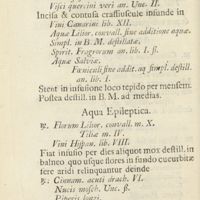 Visci quercini veri an. Unc. II.
Incisa & contusa crassiuscule infunde in
Vini Camarini lib. XII.
Aquæ Lilior. convall. sine additione aquæ
Simpl. in B. M. destillatæ.
Spirit. Fragrorum an. lib. I. ß.
Aquæ Salviæ
Fœniculi sine addit. aq simpl. destill.
an. lib. I.
Stent in infusione loco tepido per mensem.
Postea destill. in B. M. ad medias.
Aqua Epileptica.
℞. Florum Lilior. convall. m. X.
Tiliæ m. IV.
Vini Hispan. lib. VIII.
Fiat infusio per dies aliquot mox destill. in
balneo quo usque flores in fundo cucurbitæ
fere aridi relinquantur deinde
℞. Cinnam. acuti drach. VI.
Nucis mosch. Unc. ß.
Piperis longi.